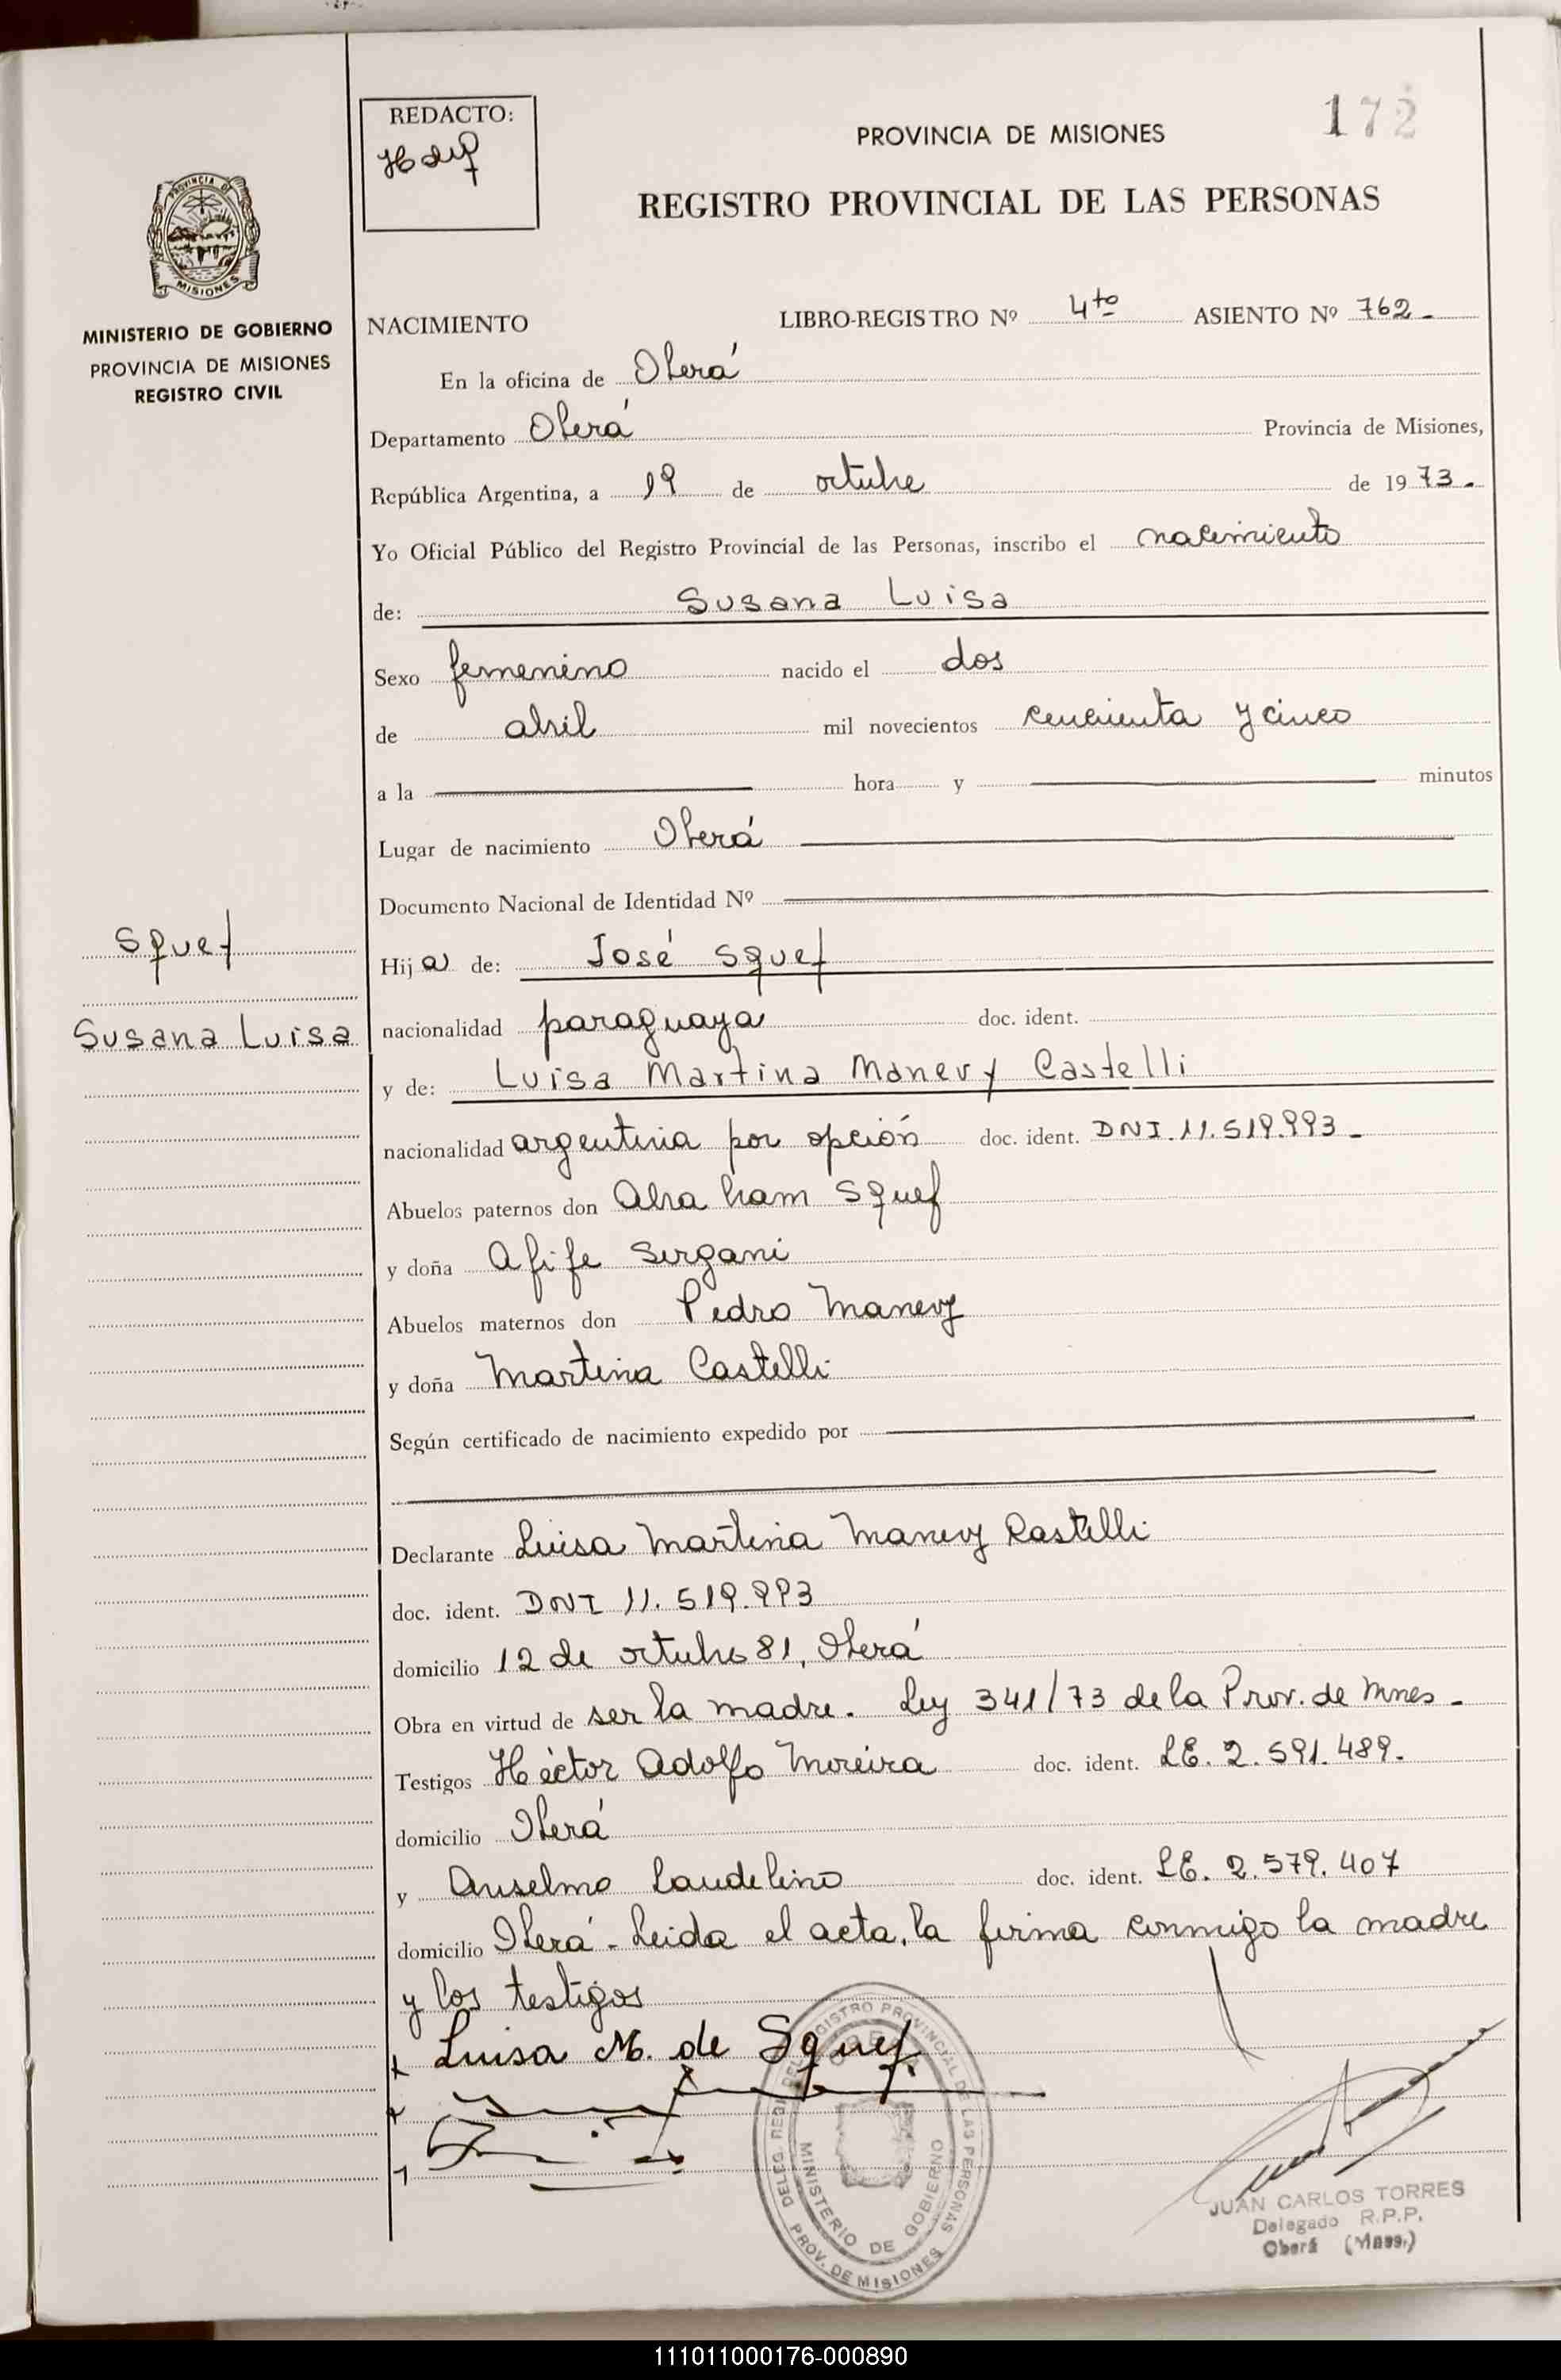 REDACTO:
172
PROVINCIA DE MISIONES
REGISTRO PROVINCIAL DE LAS PERSONAS
PROVINCIA DE
MISIONES
MINISTERIO DE GOBIERNO
PROVINCIA DE MISIONES
REGISTRO CIVIL
NACIMIENTO LIBRO-REGISTRO Nº 4to ASIENTO Nº 762.
En la oficina de Oberá
Departamento Oberá Provincia de Misiones,
República Argentina, a 19 de octubre de 1973.
Yo Oficial Público del Registro Provincial de las Personas, inscribo el nacimiento
de: Susana Luisa
Sexo femenino nacido el dos
de abril mil novecientos cincuenta y cinco
a la hora y minutos
Lugar de nacimiento Oberá
Documento Nacional de Identidad Nº
Squef
Susana Luisa
Hija de: José Squef
nacionalidad paraguaya doc. ident.
y de: Luisa Martina Manevy Castelli
nacionalidad argentina por opción doc. ident. DNI. 11.519.993.
Abuelos paternos don Abraham Squef
y doña Afife Sirgani
Abuelos maternos don Pedro Manevy
y doña Martina Castelli
Según certificado de nacimiento expedido por
Declarante Luisa Martina Manevy Castelli
doc. ident. DNI 11.519.993
domicilio 12 de octubre 81, Oberá
Obra en virtud de ser la madre. Ley 341/73 de la Prov. de Mnes.
Testigos Héctor Adolfo Moreira doc. ident. LE. 2.591.489.
domicilio Oberá
y Anselmo Laudelino doc. ident. LE. 2.579.407
domicilio Oberá - Leida el acta, la firma conmigo la madre
y los testigos
Luisa M. de Squef
DELEG. REGISTRO PROVINCIAL DE LAS PERSONAS
OBERA
MINISTERIO DE GOBIERNO
PROV. DE MISIONES
JUAN CARLOS TORRES
Delegado R.P.P.
Oberá (Mnes.)
111011000176-000890